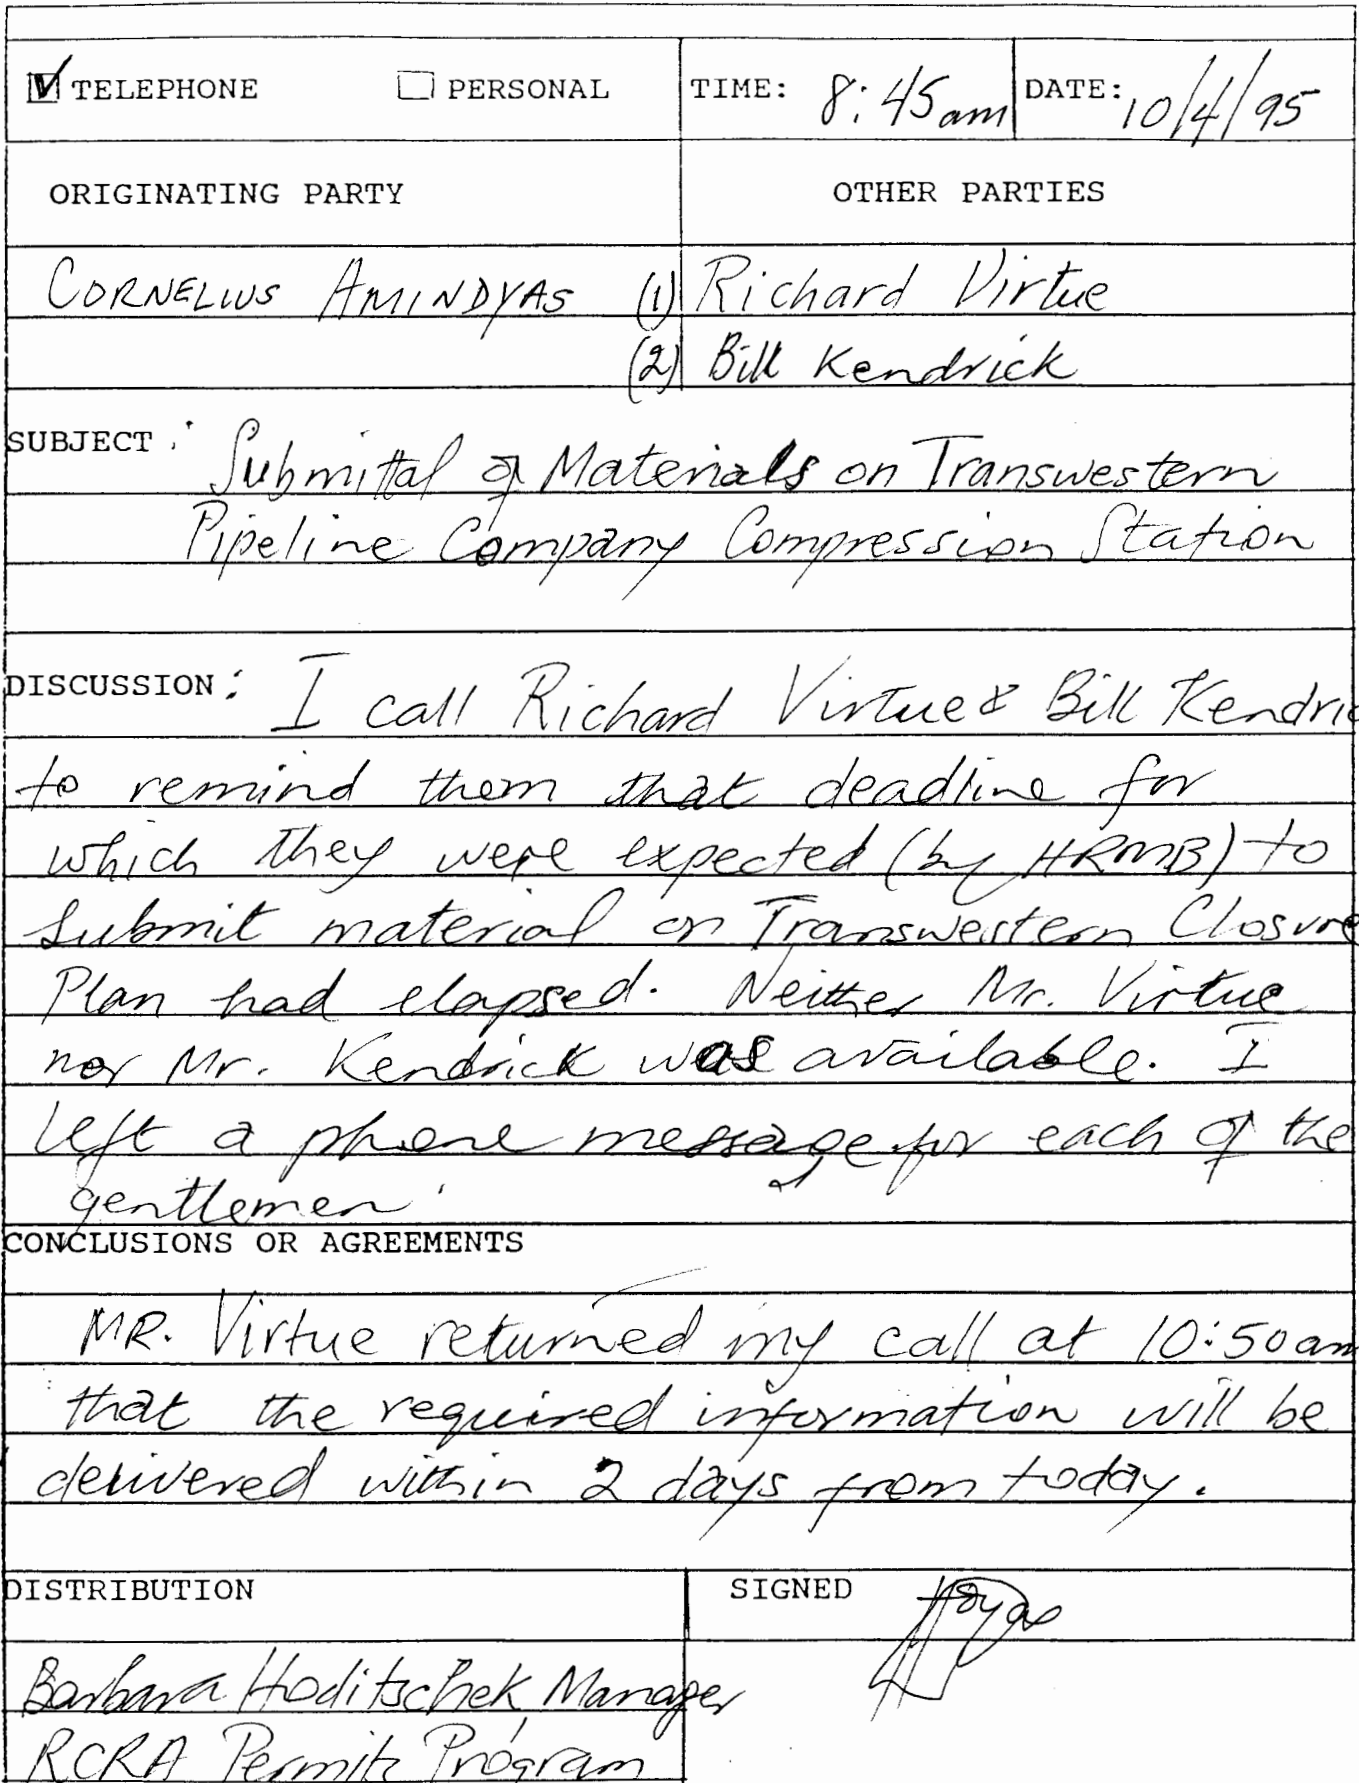 TELEPHONE PERSONAL TIME: 8:45am DATE: 10/4/95
ORIGINATING PARTY OTHER PARTIES
CORNELIUS AMINDYAS (1) Richard Virtue
(2) Bill Kendrick
SUBJECT: Submittal of Materials on Transwestern
Pipeline Company Compression Station
DISCUSSION: I call Richard Virtue & Bill Kendric
to remind them that deadline for
which they were expected (by HRMB) to
submit material on Transwestern Closure
Plan had elapsed. Neither Mr. Virtue
nor Mr. Kendrick was available. I
left a phone message for each of the
gentlemen.
CONCLUSIONS OR AGREEMENTS
MR. Virtue returned my call at 10:50am
that the required information will be
delivered within 2 days from today.
DISTRIBUTION SIGNED
Barbara Hoditschek, Manager
RCRA Permits Program